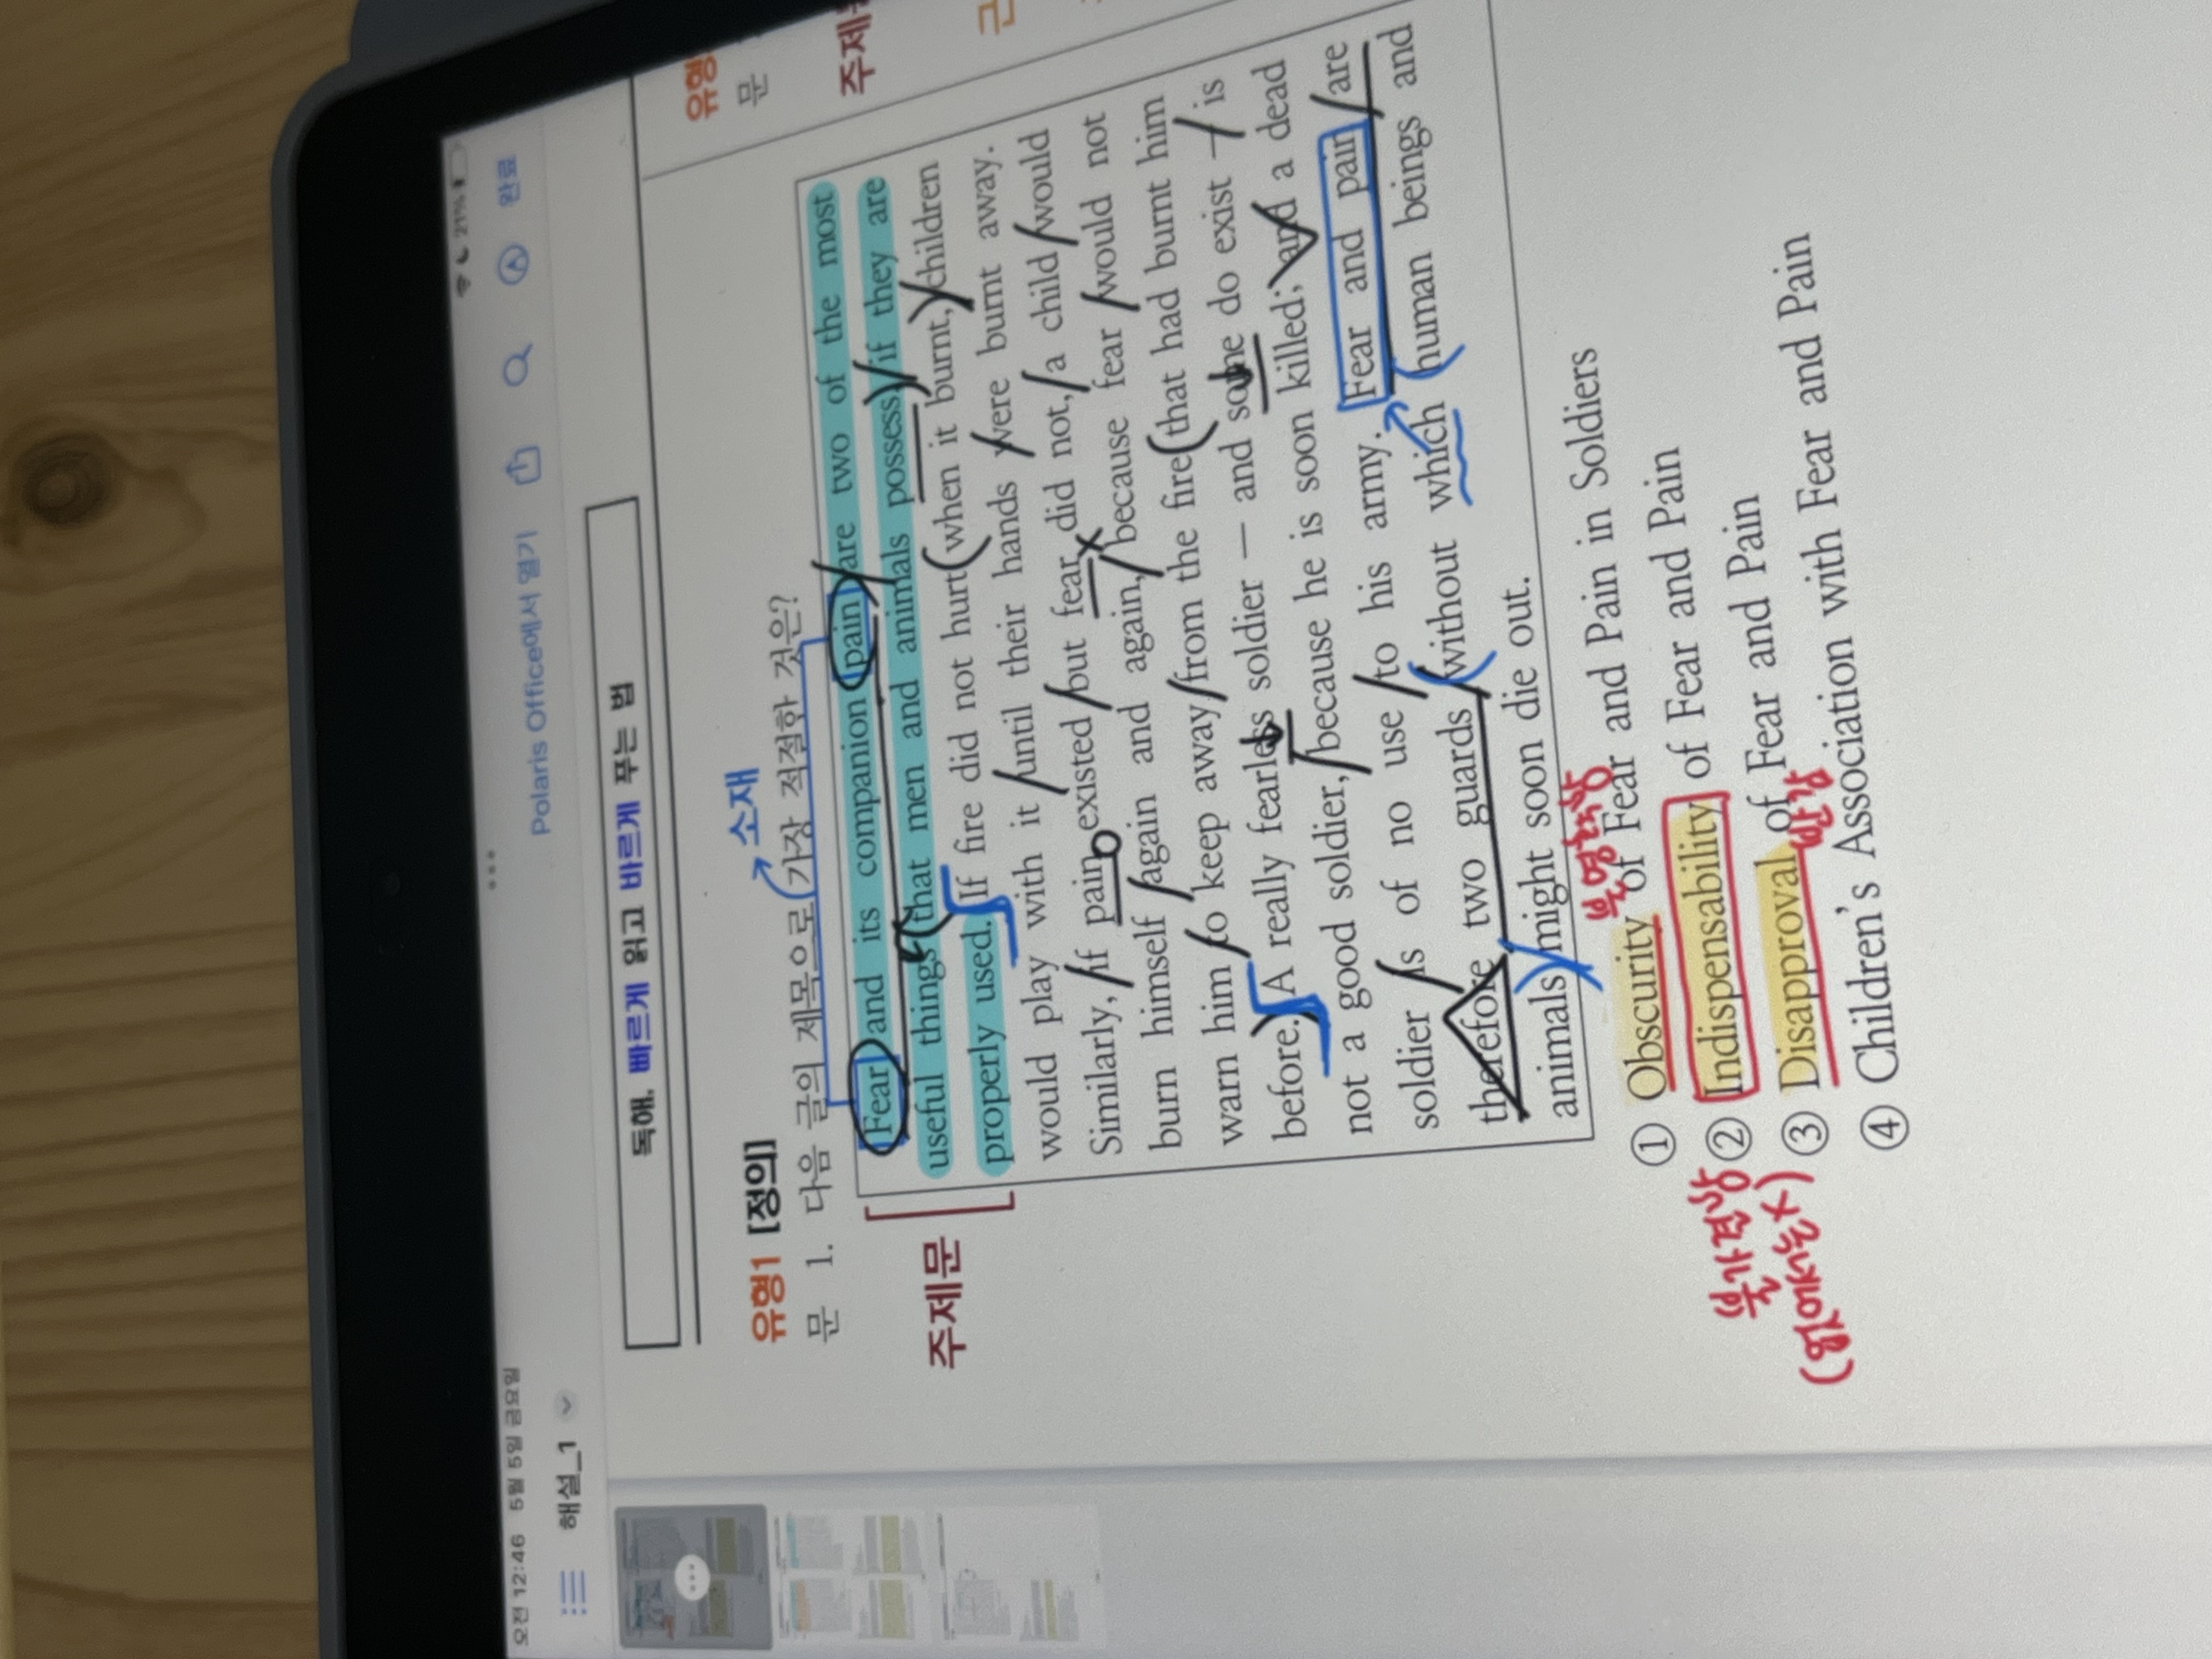 오전 12:46 5월 5일 금요일
21%
해설_1
Polaris Office에서 열기
완료
독해, 빠르게 읽고 바르게 푸는 법
유형1 [정의]
소재
문 1. 다음 글의 제목으로 가장 적절한 것은?
주제문
Fear and its companion pain are two of the most
useful things that men and animals possess, if they are
properly used. If fire did not hurt when it burnt, children
would play with it until their hands were burnt away.
Similarly, if pain existed but fear did not, a child would
burn himself again and again, because fear would not
warn him to keep away from the fire that had burnt him
before. A really fearless soldier — and some do exist — is
not a good soldier, because he is soon killed; and a dead
soldier is of no use to his army. Fear and pain are
therefore two guards without which human beings and
animals might soon die out.
불명확성
① Obscurity of Fear and Pain in Soldiers
② Indispensability of Fear and Pain
불가결성
③ Disapproval of Fear and Pain
반감
(없에서는X)
④ Children's Association with Fear and Pain
유형
문
주제
근